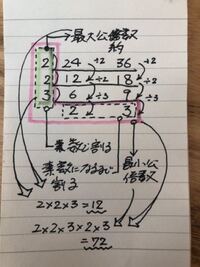 最大公倍数
約
2 24 ÷2 36 ÷2
2 12 ÷2 18 ÷2
3 6 ÷3 9 ÷3
2 3
素数で割る
素数になるまで
割る
最小公
倍数
2×2×3=12
2×2×3×2×3
=72